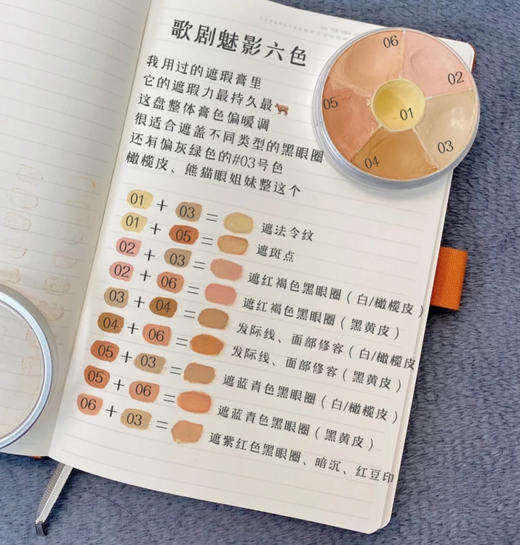 歌剧魅影六色
我用过的遮瑕膏里
它的遮瑕力最持久最🐂
这盘整体膏色偏暖调
很适合遮盖不同类型的黑眼圈
还有偏灰绿色的#03号色
橄榄皮、熊猫眼姐妹整这个
06
02
05
01
03
04
01 + 03 = 遮法令纹
01 + 05 = 遮斑点
02 + 03 = 遮红褐色黑眼圈（白/橄榄皮）
02 + 06 = 遮红褐色黑眼圈（黑黄皮）
03 + 04 = 发际线、面部修容（白/橄榄皮
04 + 06 = 发际线、面部修容（黑黄皮）
05 + 03 = 遮蓝青色黑眼圈（白/橄榄皮）
05 + 06 = 遮蓝青色黑眼圈（黑黄皮）
06 + 03 = 遮紫红色黑眼圈、暗沉、红豆印